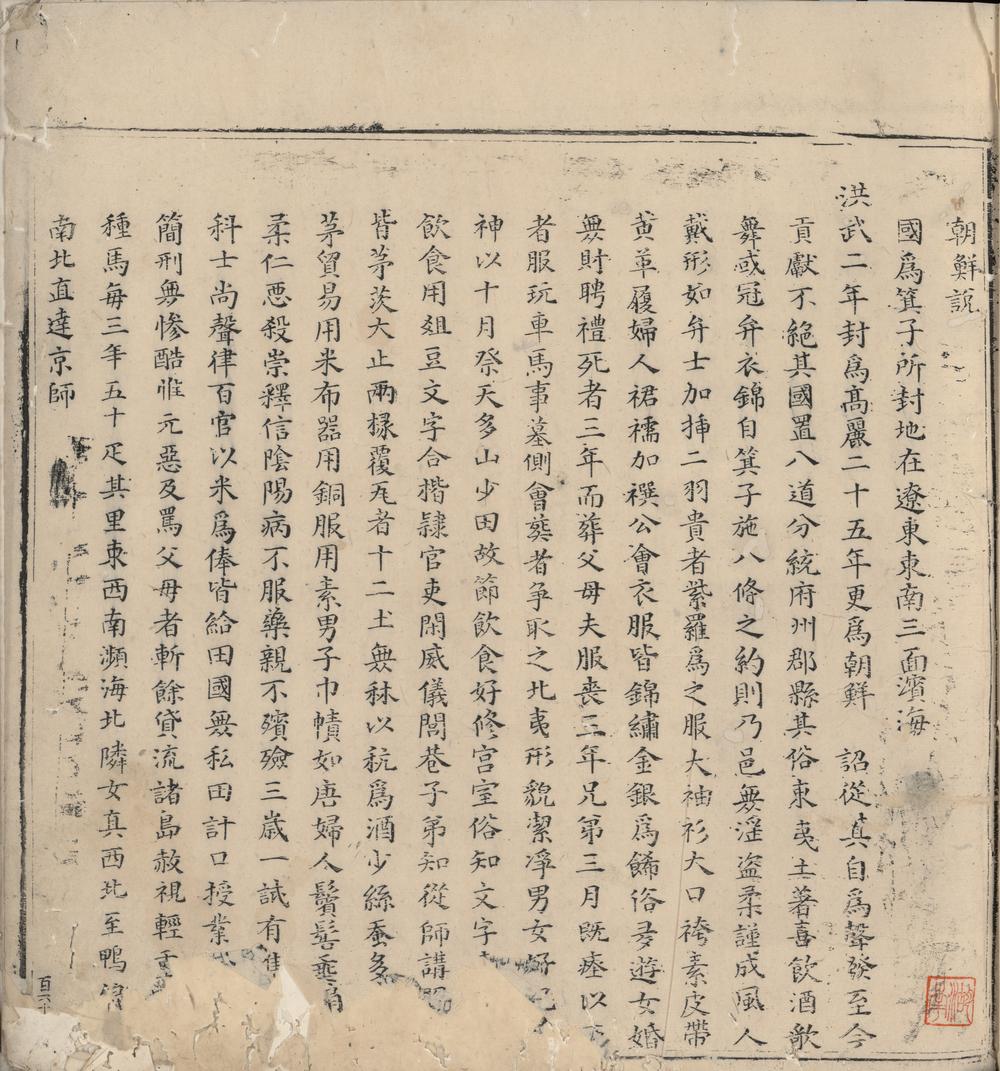 朝鮮說
國爲箕子所封地在遼東東南三面濱海
洪武二年封爲髙麗二十五年更爲朝鮮　詔從真自爲聲發至今
貢獻不絶其國置八道分統府州郡縣其俗東夷土著喜飲酒歌
舞或冠弁衣錦自箕子施八條之約則乃邑無淫盗柔謹成風人
戴形如弁士加揷二羽貴者紫羅爲之服大袖衫大口袴素皮帶
黄草履婦人裙襦加襈公會衣服皆錦繡金銀爲餙俗多遊女婚
無財聘禮死者三年而葬父母夫服喪三年兄弟三月既瘞以
者服玩車馬事墓側會葬者争取之北夷形貌潔净男女好
神以十月祭天多山少田故節飲食好修宫室俗知文字
飲食用俎豆文字合楷隷官吏閑威儀閭巷子弟知從師講
皆茅茨大止兩椽覆瓦者十二土無秫以秔爲酒少絲蚕多
茅貿易用米布器用銅服用素男子巾幘如唐婦人鬢髻垂肩
柔仁惡殺崇釋信陰陽病不服藥親不殯殮三歲一試有
科士尚聲律百官以米爲俸皆給田國無私田計口授業
簡刑無慘酷惟元惡及罵父母者斬餘貸流諸島赦視輕重
種馬每三年五十疋其里東西南瀕海北隣女真西北至鴨
南北直達京師
百六十